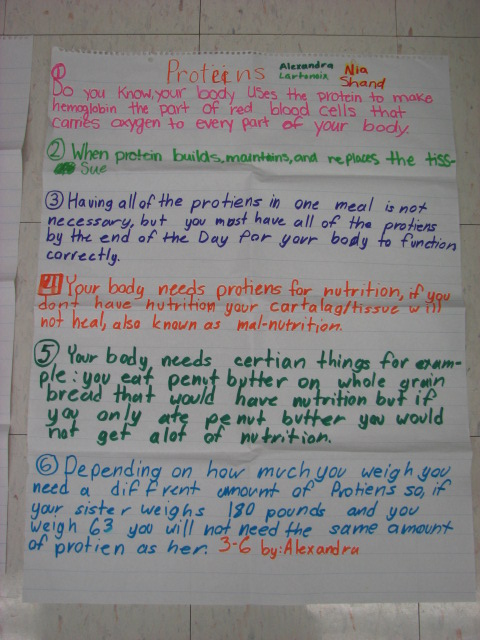 Protеins Alexandra Nia
Lartonoix Shand
① Do you know, your body uses the protein to make
hemoglobin the part of red blood cells that
carries oxygen to every part of your body.
② When protein builds, maintains, and replaces the tiss-
sue
③ Having all of the protiens in one meal is not
necessary, but you must have all of the protiens
by the end of the Day for your body to function
correctly.
4 Your body needs protiens for nutrition, if you
don't have nutrition your cartalag/tissue will
not heal, also known as mal-nutrition.
⑤ Your body needs certian things for exam-
ple: you eat penut butter on whole grain
bread that would have nutrition but if
you only ate penut butter you would
not get alot of nutrition.
⑥ Depending on how much you weigh you
need a diffrent amount of Protiens so, if
your sister weighs 180 pounds and you
weigh 63 you will not need the same amount
of protien as her. 3-6 by: Alexandra